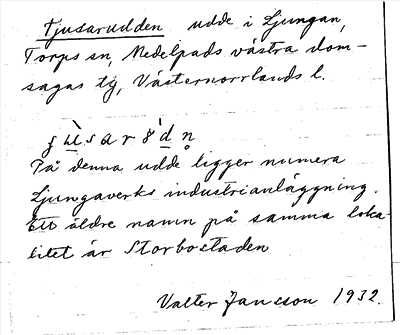 Tjusarudden udde i Ljungan,
Torps sn, Medelpads västra dom-
sagas tg, Västernorrlands l.
På denna udde ligger numera
Ljungaverks industrianläggning.
Ett äldre namn på samma loka-
litet är Storbostaden
Valter Jansson 1932.